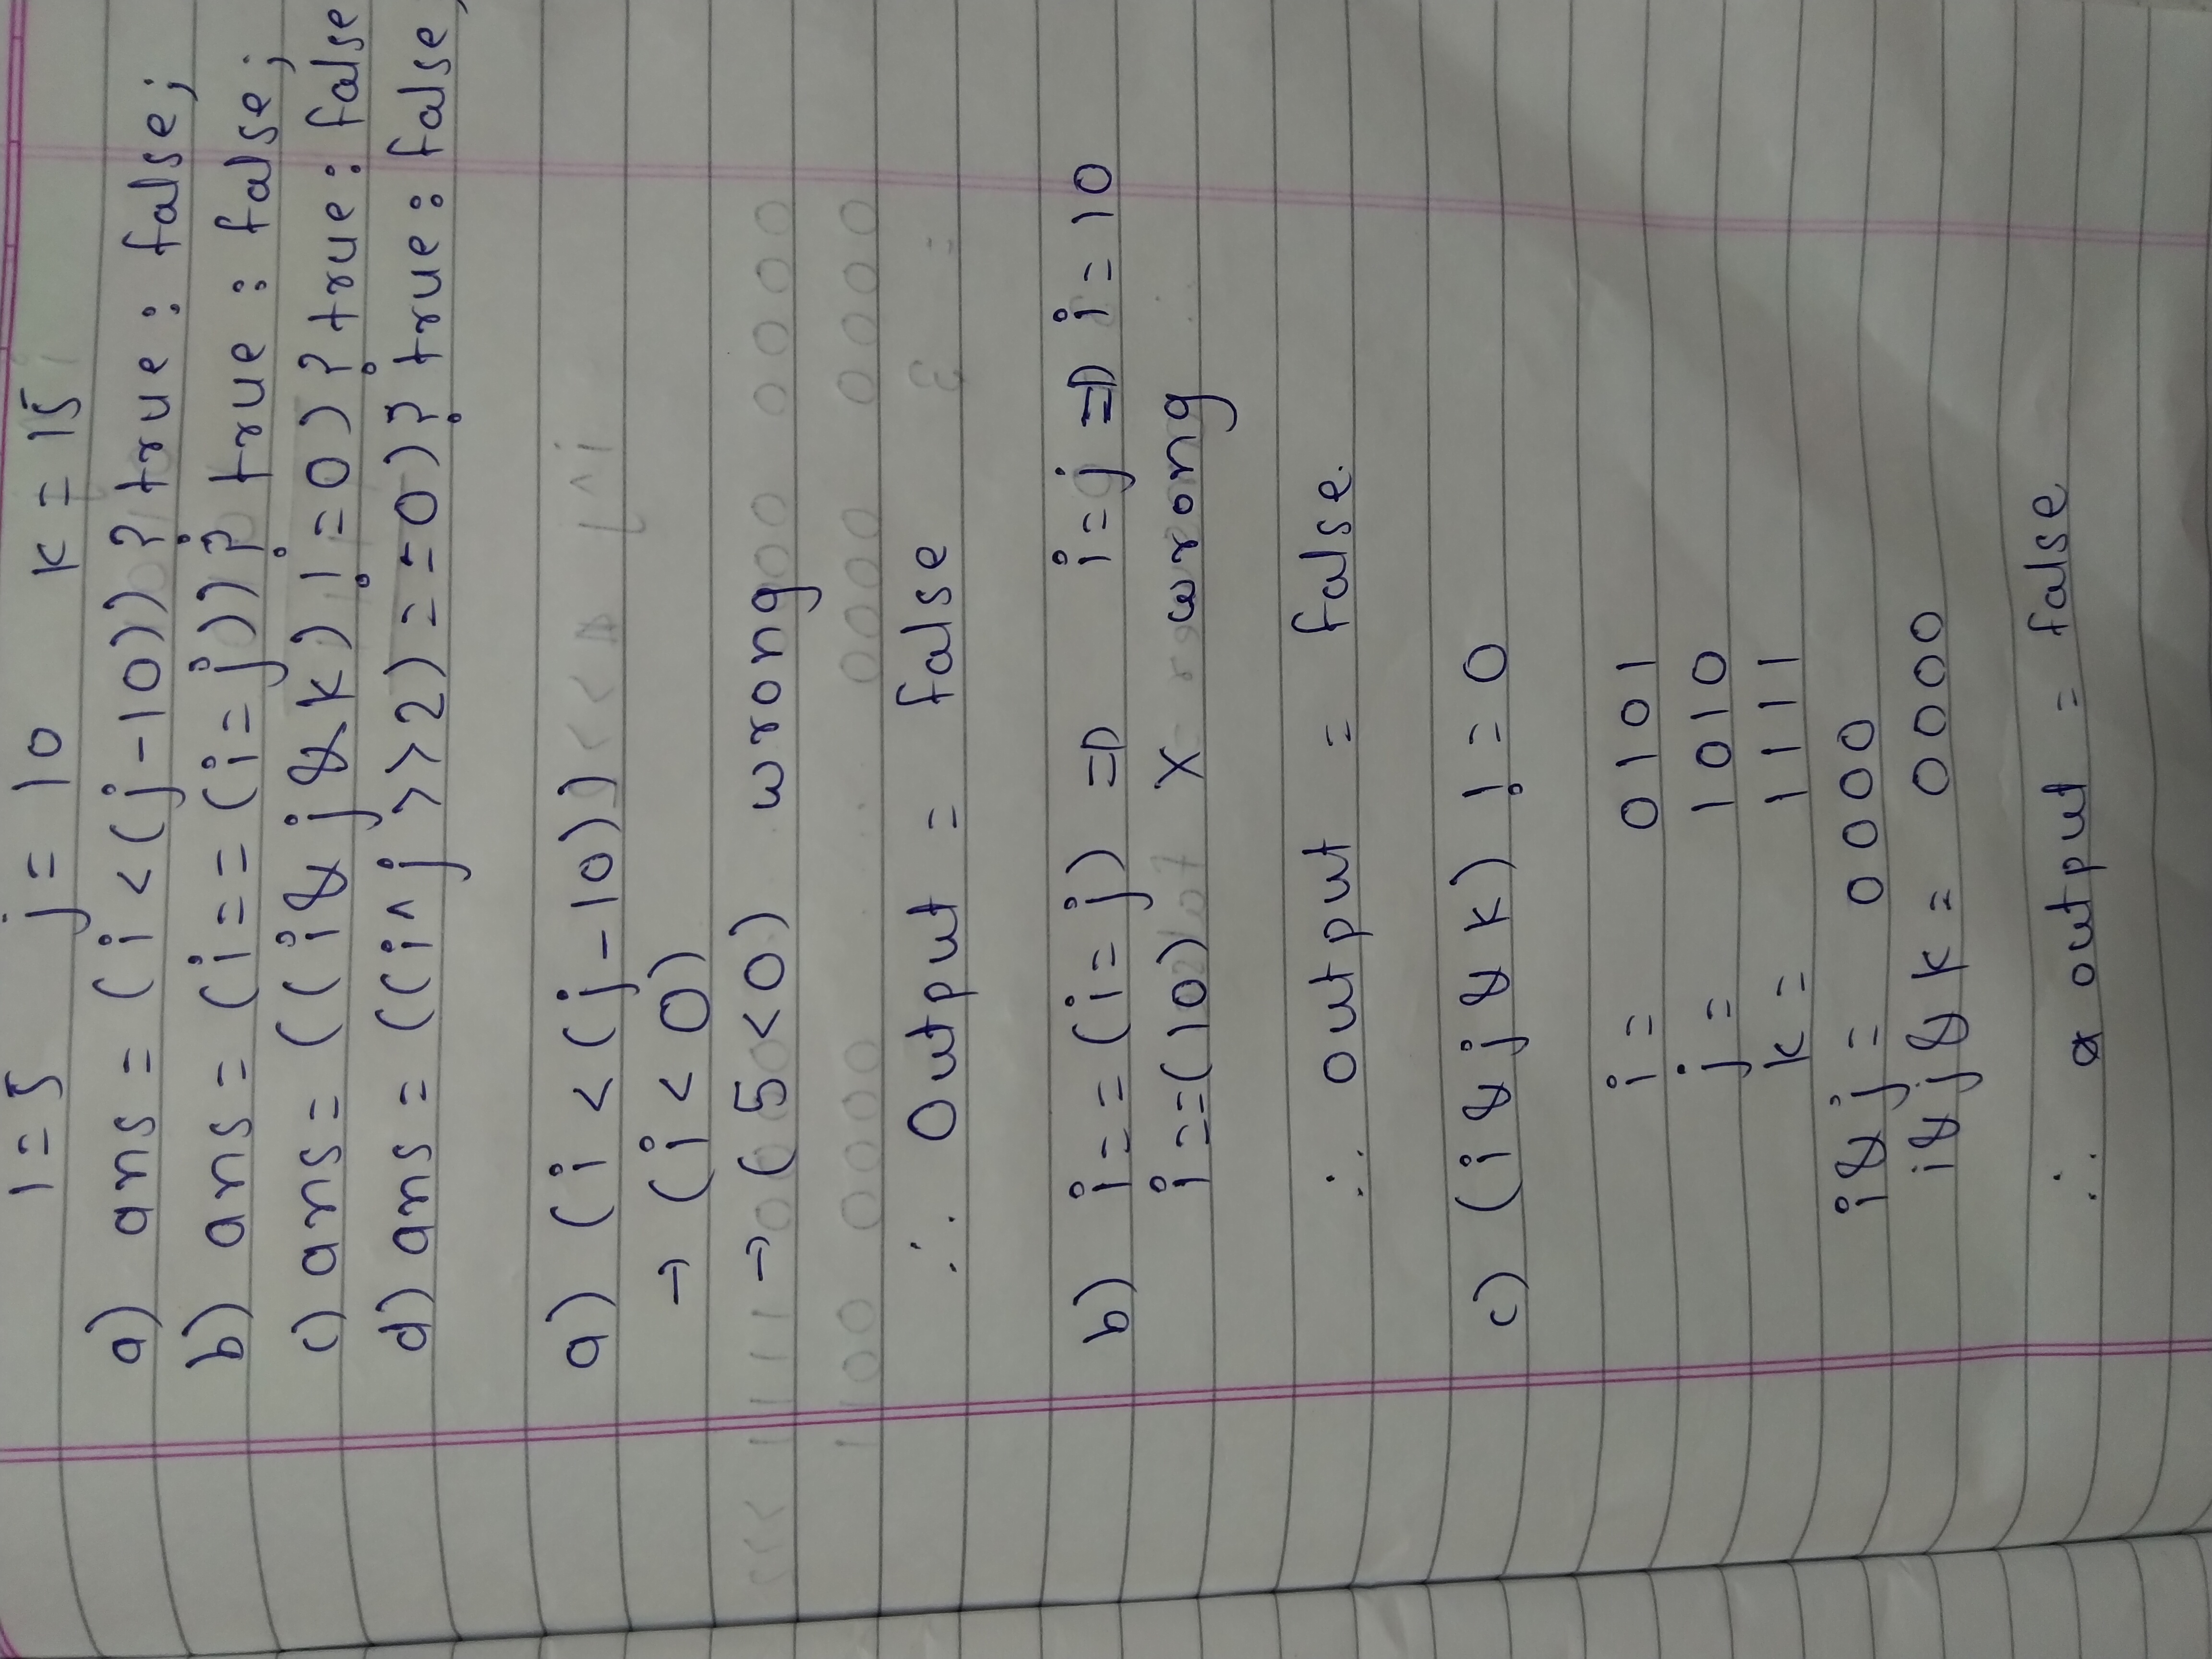 i = 5 j = 10 k = 15
a) ans = (i < (j-10)) ? true : false;
b) ans = (i == (i = j)) ? true : false;
c) ans = ((i & j & k) != 0) ? true : false
d) ans = ((i ^ j >> 2) == 0) ? true : false,
a) (i < (j - 10))
→ (i < 0)
→ (5 < 0) wrong
∴ Output = false
b) i == (i = j) ⇒ i = j ⇒ i = 10
i == (10) X wrong
∴ output = false.
c) (i & j & k) != 0
i = 0101
j = 1010
k = 1111
i & j = 0000
i & j & k = 0000
∴ output = false